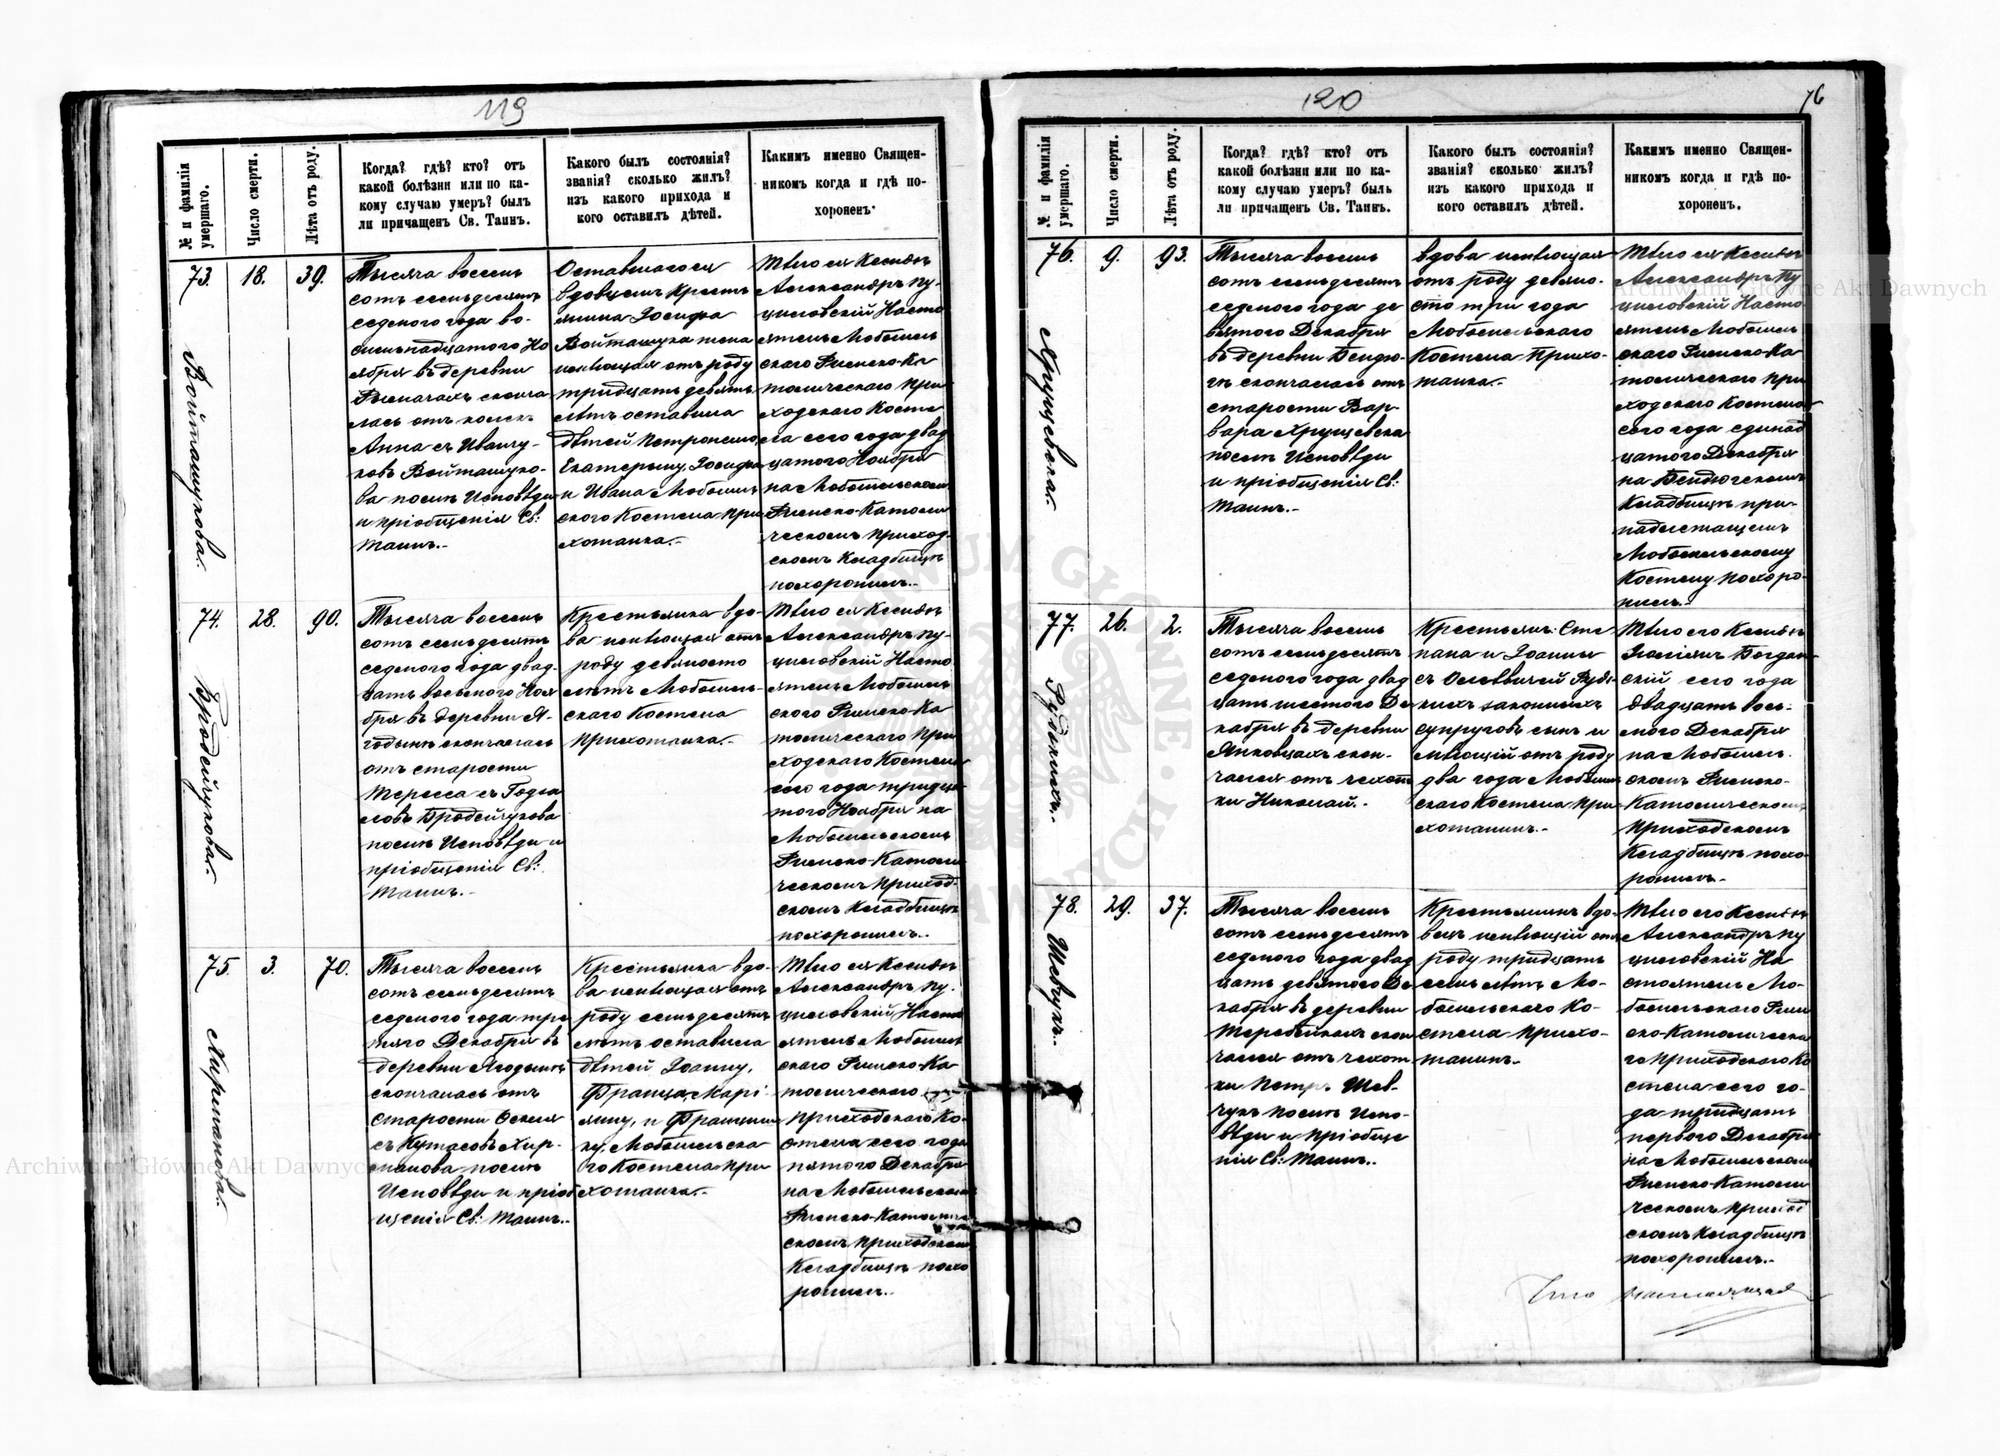 119
№ и фамилія умершаго.
Число смерти.
Лѣта отъ роду.
Когда? гдѣ? кто? отъ
какой болѣзни или по ка-
кому случаю умеръ? былъ
ли причащенъ Св. Таинъ.
Какого былъ состоянія?
званія? сколько жилъ?
изъ какого прихода и
кого оставилъ дѣтей.
Какимъ именно Священ-
никомъ когда и гдѣ по-
хороненъ.
73.
Войташукова.
18.
39.
Тысяча восемь
сотъ семьдесятъ
седмого года во-
семьнадцатого Но
ября въ деревни
сконча
лась отъ
Анна съ Ивашу-
ковъ Войташуко-
ва послѣ Исповѣди
и пріобщенія Св:
Таинъ.-
Оставшагося
вдовцемъ Кресть
янина Іосифа
Войташука жена
имѣющая отъ роду
тридцать девять
лѣтъ оставила
дѣтей Петронелю,
Екатерыну, Іосифа
и Ивана Любомль
ского Костела при
хожанка.-
Тѣло ея Ксендзъ
Александръ Пу-
циловскій Насто
ятель Любомль
скаго Римско-Ка
толическаго При
ходскаго Косте
ла сего года двад
цатого Ноября
на Любомльскомъ
Римско-Католи
ческомъ приход
скомъ Кладбищѣ
похоронилъ.-
74.
Бродейчукова.
28.
90.
Тысяча восемь
сотъ семьдесятъ
седмого года двад-
цать восьмого Ноя
бря въ деревни Я-
годынѣ скончалась
отъ старости
Тересса съ
Бродейчукова
послѣ Исповѣди и
пріобщенія Св:
Таинъ.-
Крестьянка вдо-
ва имѣющая отъ
роду девяносто
лѣтъ Любомль-
скаго Костела
прихожанка.-
Тѣло ея Ксендзъ
Александръ Пу-
циловскій Насто
ятель Любомль
ского Римско-Ка
толическаго При
ходскаго Костела
сего года тридца
того Ноября на
Любомльскомъ
Римско-Католи
ческомъ приход-
скомъ Кладбищѣ
похоронилъ.-
75.
Хирманова.
3.
70.
Тысяча восемь
сотъ семьдесятъ
седмого года тре
тяго Декабря въ
деревни Ягодынѣ
скончалась отъ
старости
съ Хир-
манова послѣ
Исповѣди и пріоб
щенія Св: Таинъ.-
Крестьянка вдо-
ва имѣющая отъ
роду семьдесятъ
лѣтъ оставила
дѣтей Іоанну,
Франца, Марі-
янну, и Францишку
Любомльска
го Костела при
хожанка.-
Тѣло ея Ксендзъ
Александръ Пу-
циловскій Насто
ятель Любомль
скаго Римско-Ка
толическаго
Приходскаго Ко-
стела сего года
пятого Декабря
на Любомльскомъ
Римско-Католиче
скомъ приходскомъ
Кладбищѣ похо
ронилъ.-
120
76
№ и фамилія умершаго.
Число смерти.
Лѣта отъ роду.
Когда? гдѣ? кто? отъ
какой болѣзни или по ка-
кому случаю умеръ? былъ
ли причащенъ Св. Таинъ.
Какого былъ состоянія?
званія? сколько жилъ?
изъ какого прихода и
кого оставилъ дѣтей.
Какимъ именно Священ-
никомъ когда и гдѣ по-
хороненъ.
76.
Хрущевска.
9.
93.
Тысяча восемь
сотъ семьдесятъ
седмого года де
вятого Декабря
въ деревни Бендю-
гѣ скончалась отъ
старости Вар-
вара Хрущевска
послѣ Исповѣди
и пріобщенія Св:
Таинъ.-
вдова имѣющая
отъ роду девяно-
сто три года
Любомльскаго
Костела Прихо-
жанка.-
Тѣло ея Ксендзъ
Александръ Пу
циловскій Насто
ятель Любомль
скаго Римско-Ка
толическаго При
ходскаго Костела
сего года единад
цатого Декабря
на Бендюгскомъ
Кладбищѣ при-
надлежащемъ
Любомльскому
Костелу похоро-
нилъ.-
77.
Рудникъ.
26.
2.
Тысяча восемь
сотъ семьдесятъ
седмого года двад
цать шестого Де
кабря въ деревни
скон-
чался отъ чахот
ки Николай.-
Крестьянъ: Сте
пана и Іоанны
съ
законныхъ
супруговъ сынъ и
мѣющій отъ роду
два года Любомль
скаго Костела при
хожанинъ.-
Тѣло его Ксендзъ
Юліянъ Богдан
скій сего года
двадцать вось-
мого Декабря
на Любомль-
скомъ Римско-
Католическомъ
приходскомъ
Кладбищѣ похо-
ронилъ.-
78.
Шевчукъ.
29.
37.
Тысяча восемь
сотъ семьдесятъ
седмого года двад
цать девятого Де
кабря въ деревни
Теребейкахъ скон
чался отъ чахот
ки Петръ Шев-
чукъ послѣ Испо-
вѣди и пріобще
нія Св: Таинъ.-
Крестьянинъ вдо-
вецъ имѣющій отъ
роду тридцать
семь лѣтъ Лю-
бомльскаго Ко-
стела прихо-
жанинъ.-
Тѣло его Ксендзъ
Александръ Пу
циловскій На
стоятель Лю-
бомльскаго Рим
ско-Католическа
го приходскаго Ко
стела сего го-
да тридцать
перваго Декабря
на Любомльскомъ
Римско-Католи
ческомъ приход
скомъ Кладбищѣ
похоронилъ.-
Archiwum Główne Akt Dawnych
Archiwum Główne Akt Dawnych